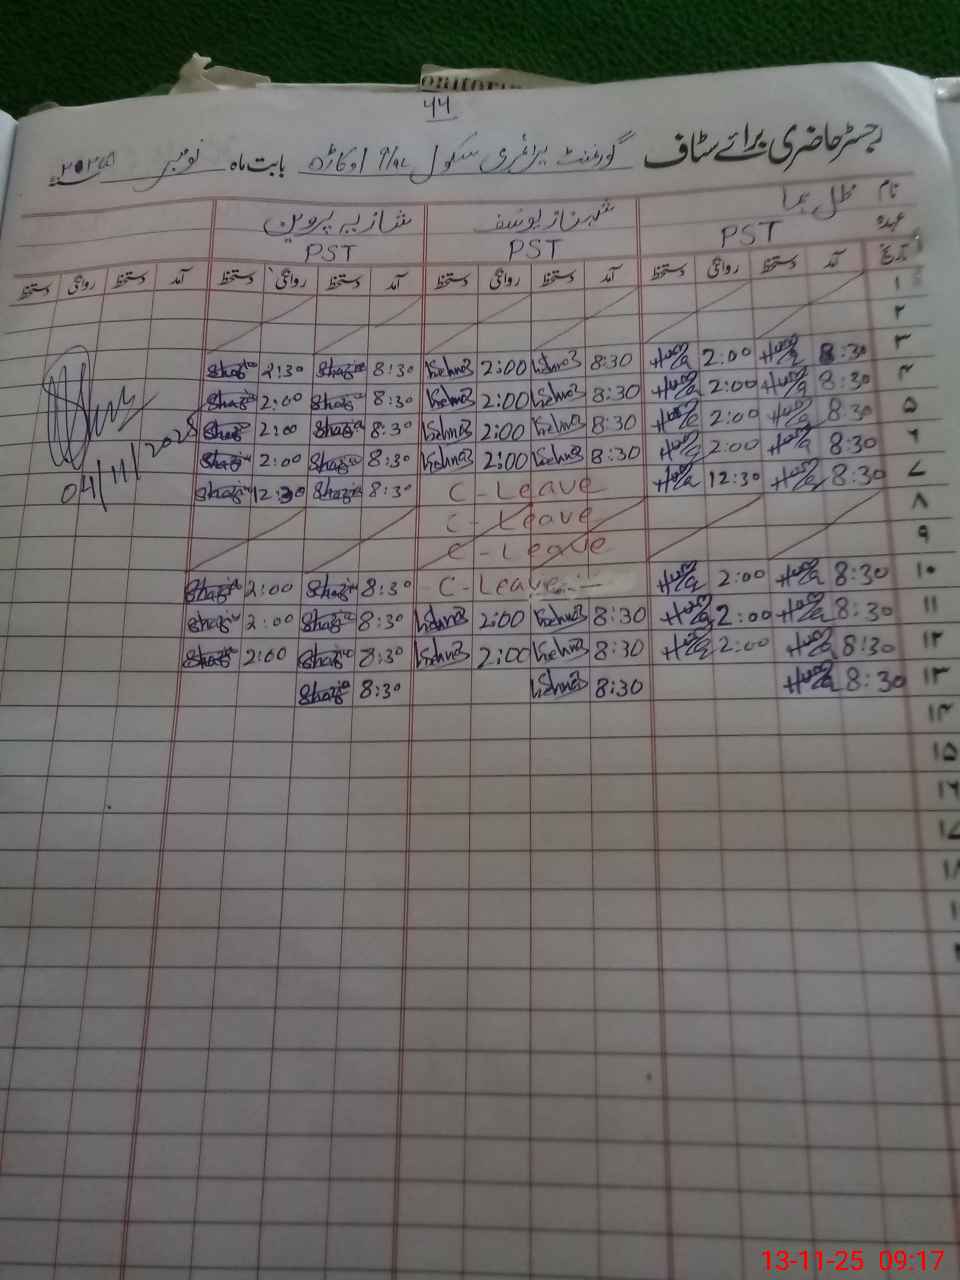 onitorin
44
رجسٹر حاضری برائے سٹاف گورنمنٹ پرائمری سکول 9/4L اوکاڑہ بابت ماہ نومبر ۲۰۲۵
نام ظل ہما شہناز یوسف شازیہ پروین
عہدہ PST PST PST
تاریخ آمد دستخط روانگی دستخط آمد دستخط روانگی دستخط آمد دستخط روانگی دستخط آمد دستخط روانگی دستخط
۱
۲
۳ 8:30 Huma 2:00 Huma 8:30 2:00 8:30 Shazia 2:30 Shazia
۴ 8:30 Huma 2:00 Huma 8:30 2:00 8:30 Shazia 2:00 Shazia
۵ 8:30 Huma 2:00 Huma 8:30 2:00 8:30 Shazia 2:00 Shazia
۶ 8:30 Huma 2:00 Huma 8:30 2:00 8:30 Shazia 2:00 Shazia
04/11/2025
۷ 8:30 Huma 12:30 Huma C-Leave 8:30 Shazia 12:30 Shazia
۸ C-Leave
۹ C-Leave
۱۰ 8:30 Huma 2:00 Huma C-Leave 8:30 Shazia 2:00 Shazia
۱۱ 8:30 Huma 2:00 Huma 8:30 2:00 8:30 Shazia 2:00 Shazia
۱۲ 8:30 Huma 2:00 Huma 8:30 2:00 8:30 Shazia 2:00 Shazia
۱۳ 8:30 Huma 8:30 8:30 Shazia
۱۴
۱۵
۱۶
۱۷
۱۸
13-11-25 09:17